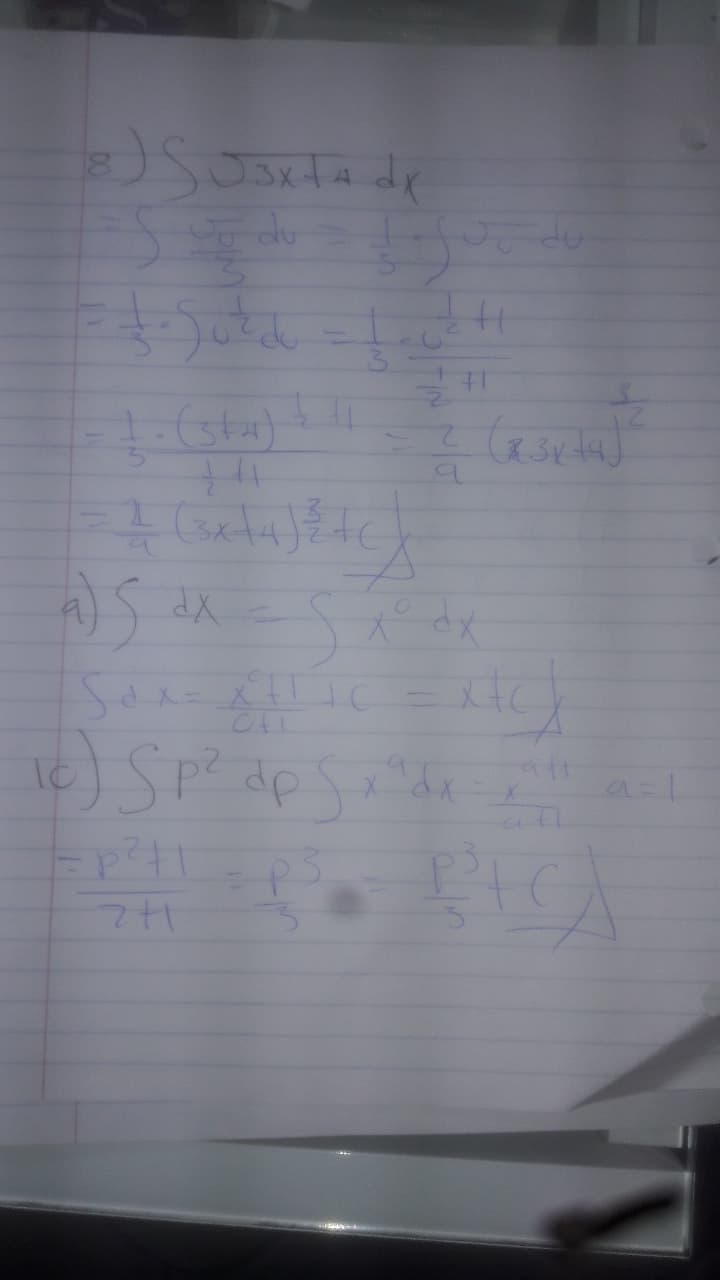 8) ∫ √3x+4 dx
= ∫ √u/3 du = 1/3 · ∫ √u du
= 1/3 · ∫ u^1/2 du = 1/3 · u^1/2+1 / 1/2+1
= 1/3 · (3+4)^1/2+1 / 1/2+1 = 2/9 (3x+4)^3/2
= 2/9 (3x+4)^3/2 + C
9) ∫ dx = ∫ x^0 dx
∫ dx = x^0+1 / 0+1 + C = x+C
10) ∫ p^2 dp ∫ x^a dx = x^a+1 / a+1 a=1
= p^2+1 / 2+1 = p^3/3 = p^3/3 + C